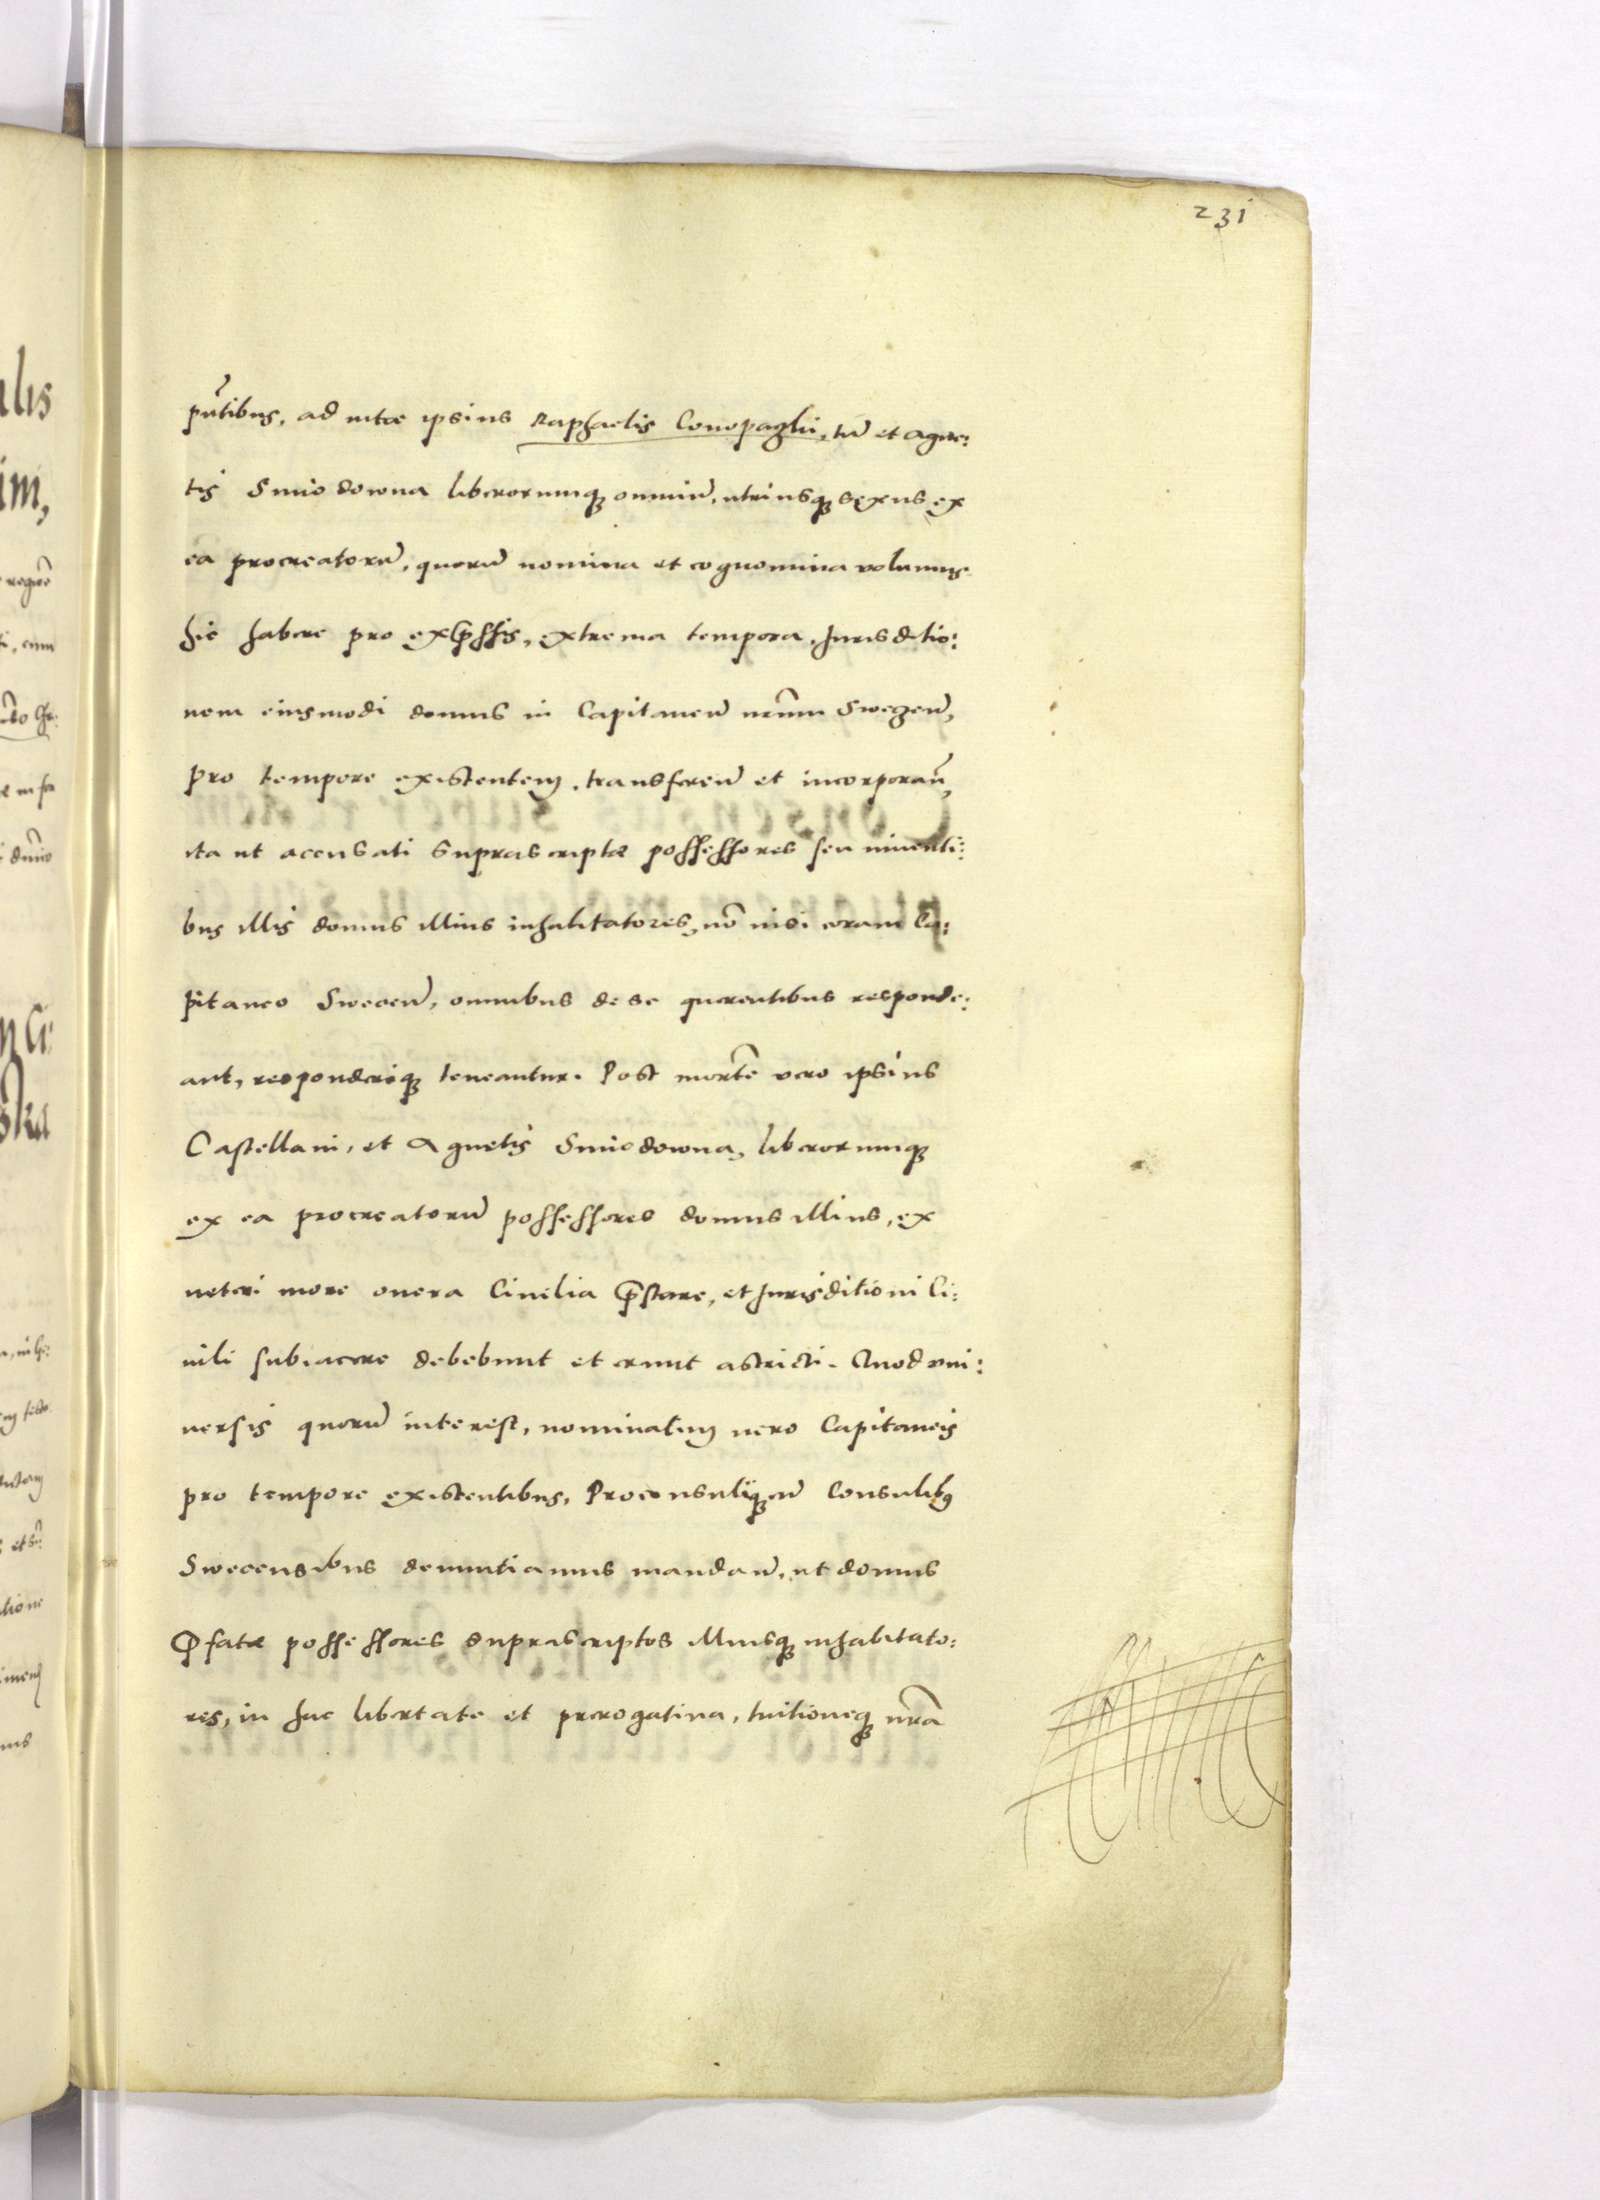 231
pn̄tibus, ad vitæ ipsius Raphaelis Conopaglii, tū et Agne:
tis Smiodowna liberorumq; omniū, utriusq; sexus ex
ea procreatorū, quorū nomina et cognomina volumus
hic habere pro exp̄ssis, extrema tempora, Jurisditio:
nem eiusmodi domus in Capitaneū nr̄um Swegen̄,
pro tempore existentem, transferen̄ et incorporan̄,
ita ut accusati suprascriptæ possessores seu viventi:
bus illis domus illius inhabitatores, nō nisi coram Ca:
pitaneo Swecen̄, omnibus de se querentibus responde:
ant, responderiq; teneantur. Post mortē vero ipsius
Castellani, et Agnetis Smiodowna, liberorumq;
ex ea procreatorū possessores domus illius, ex
veteri more onera Civilia p̄stare, et Jurisditioni Ci:
vili subiacere debebunt et erunt astricti. Quod vni:
versis quorū interest, nominatim vero Capitaneis
pro tempore existentibus, Proconsuliq; cū Consulibꝰ
Swecensibus denuntiamus mandan̄, ut domus
P̄fatæ possessores suprascriptos illiusq; inhabitato:
res, in hac libertate et prerogativa, tuitioneq; nr̄a